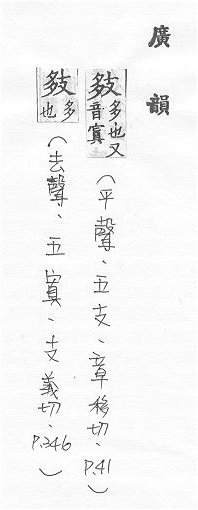 廣韻
多也又音寘(平聲、五支、章移切、P.41)
多也(去聲、五寘、支義切、P.346)